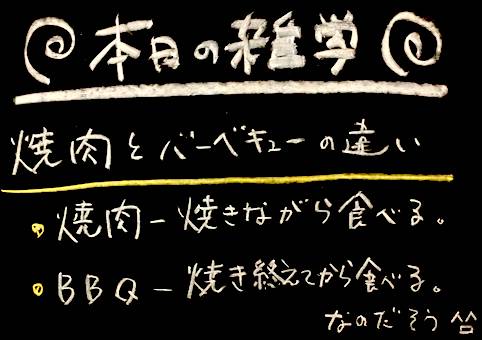 本日の雑学
焼肉とバーベキューの違い
・焼肉ー焼きながら食べる。
・BBQー焼き終えてから食べる。
なのだそう